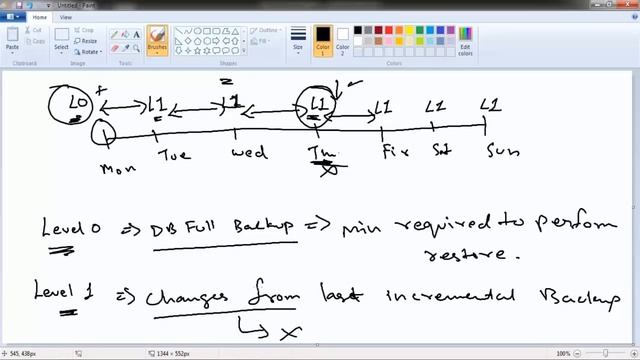 Untitled - Paint
Home View
Paste Cut Copy Select Crop Resize Rotate Brushes Outline Fill Size Color 1 Color 2 Edit colors
Clipboard Image Tools Shapes Colors
L0 + L1 L1 L1 L1 L1 L1
Mon Tue Wed Thu Fir Sat Sun
Level 0 => DB Full Backup => Min required to perform
restore.
Level 1 => Changes from last incremental Backup
x
545, 438px 1344 × 552px 100%